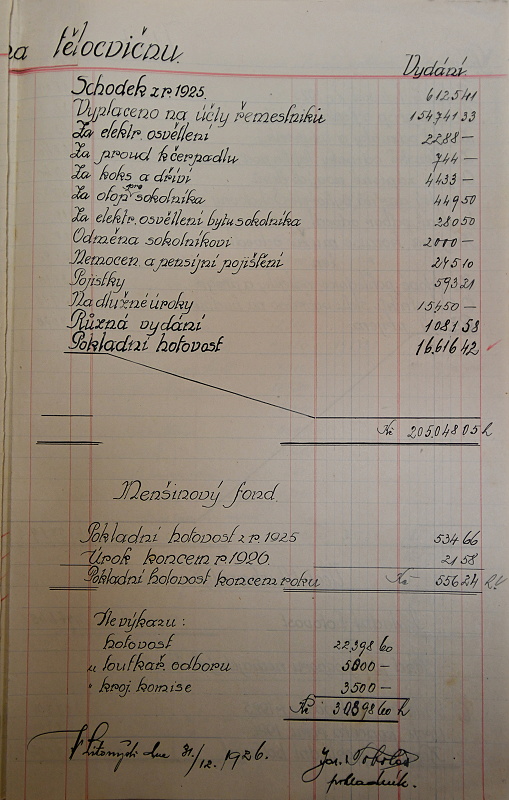 na tělocvičnu.
Vydání.
Schodek z r. 1925. 612541
Vyplaceno na účty řemestníků 15474133
Za elektr. osvětlení 2288 —
Za proud k čerpadlu 744 —
Za koks a dříví 4433 —
Za otop pro sokolníka 44950
Za elektr. osvětlení bytu sokolníka 28050
Odměna sokolníkovi 2000 —
Nemocen. a pensijní pojištění 27510
Pojistky 59321
Na dlužné úroky 15450 —
Různá vydání 108158
Pokladní hotovost 16.61642
Kč 205.04805 h
Menšinový fond.
Pokladní hotovost z r. 1925 53466
Úrok koncem r. 1926. 2158
Pokladní hotovost koncem roku Kč 55624
Ke výkazu:
hotovost 22.39860
„ loutkař. odboru 5000 —
" kroj. komise 3.500 —
Kč 3089860 h
V Litomyšli dne 31./12. 1926.
pokladník.